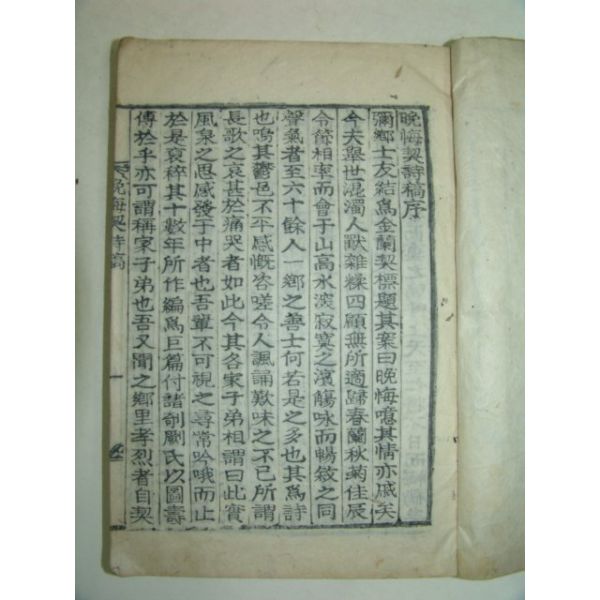 晩悔契詩稿序
彌鄉士友結爲金蘭契標題其案曰晩悔噫其情亦戚矣
今夫擧世混濁人獸雜糅四顧無所適歸春蘭秋菊佳辰
令節相率而會于山高水淡寂寞之濱觴咏而暢敘之同
聲氣者至六十餘人一鄉之善士何若是之多也其爲詩
也鳴其鬱悒不平感慨咨嗟令人諷誦歎味之不已所謂
長歌之哀甚於痛哭者如此今其各家子弟相謂曰此實
風泉之思感發于中者也吾輩不可視之尋常吟哦而止
於是裒稡其十數年所作編爲巨篇付諸剞劂氏以圖壽
傳於乎亦可謂稱家子弟也吾又聞之鄉里孝烈者自契
晩悔契詩稿
一